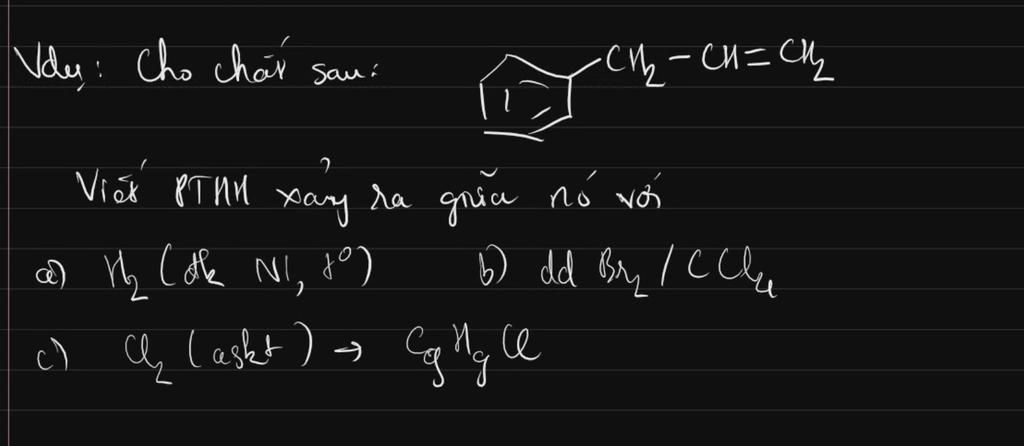 Vdụ: Cho chất sau: CH₂ – CH = CH₂
Viết PTHH xảy ra giữa nó với
a) H₂ (đk Ni, t°) b) dd Br₂ / CCl₄
c) Cl₂ (askt) → C₉H₉Cl